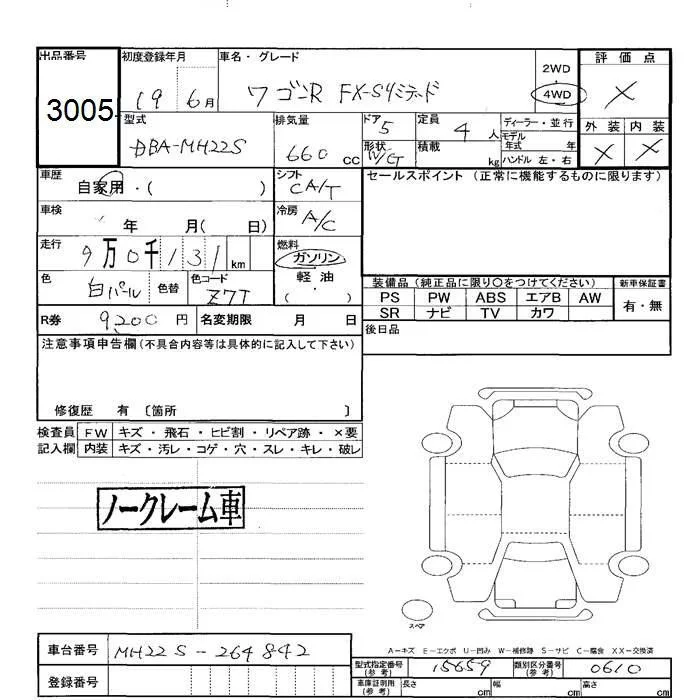 出品番号 3005
初度登録年月 19 6月
車名・グレード ワゴンR FX-Sリミテッド
2WD
4WD
評価点 ×
外装 × 内装 ×
型式 DBA-MH22S
排気量 660 cc
ドア 5
形状
定員 4人
積載 kg
ディーラー・並行
モデル年式 年
ハンドル 左・右
車歴 自家用・( )
シフト CA/T
冷房 A/C
セールスポイント (正常に機能するものに限ります)
車検 年 月( 日)
走行 9万0千131km
燃料 ガソリン
軽油
( )
色 白パール 色替 色コード Z7T
装備品 (純正品に限り○をつけてください)
PS PW ABS エアB AW
SR ナビ TV カワ
新車保証書
有・無
R券 9200円 名変期限 月 日
後日品
注意事項申告欄(不具合内容等は具体的に記入して下さい)
修復歴 有 〔箇所 〕
検査員 FW キズ・飛石・ヒビ割・リペア跡・×要
記入欄 内装 キズ・汚レ・コゲ・穴・スレ・キレ・破レ
ノークレーム車
スペア
A-キズ E-エクボ U-凹み W-補修跡 S-サビ C-腐食 XX-交換済
車台番号 MH22S-264842
型式指定番号(参考) 15659 類別区分番号(参考) 0610
登録番号
車庫証明用(参考) 長さ cm 幅 cm 高さ cm